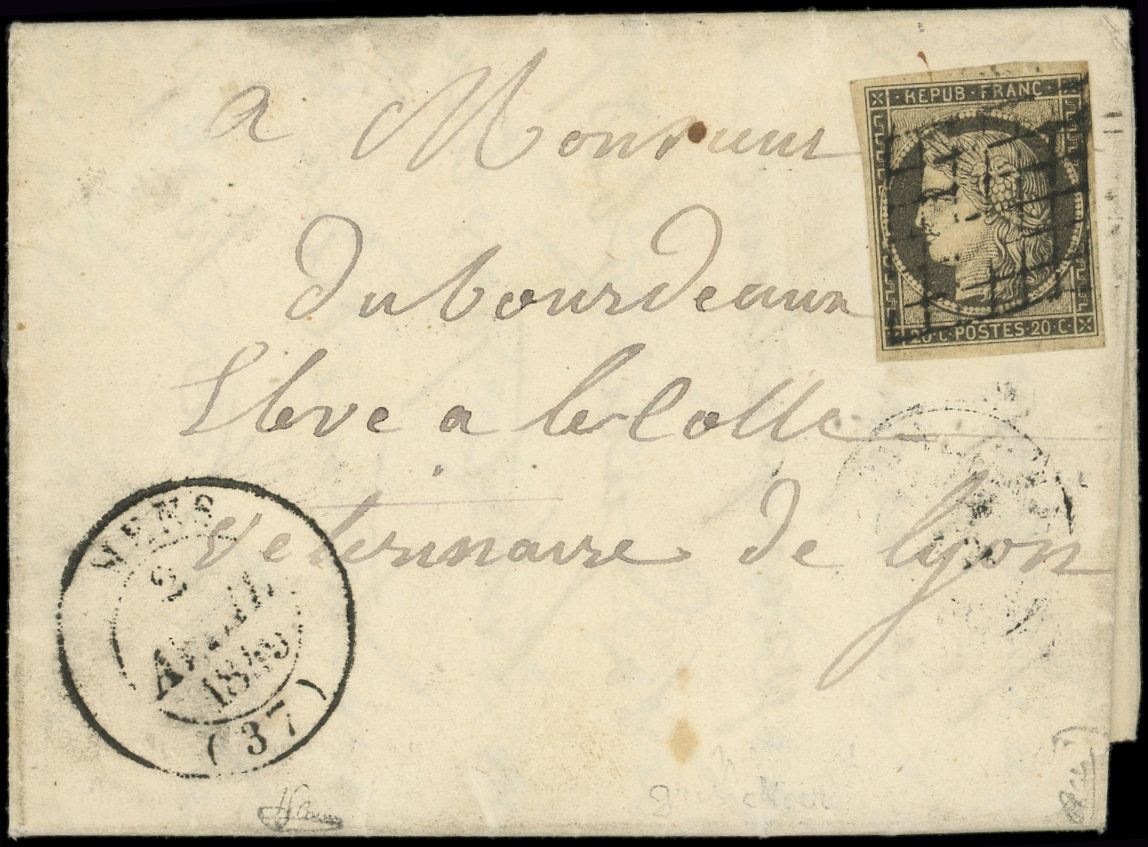 REPUB · FRANC ·
20 · C · POSTES · 20 · C ·
a Monsieur
Dubourdeaux
Eleve a lecolle
veterinaire de lyon
MENS
2
AVRIL
1849
(37)